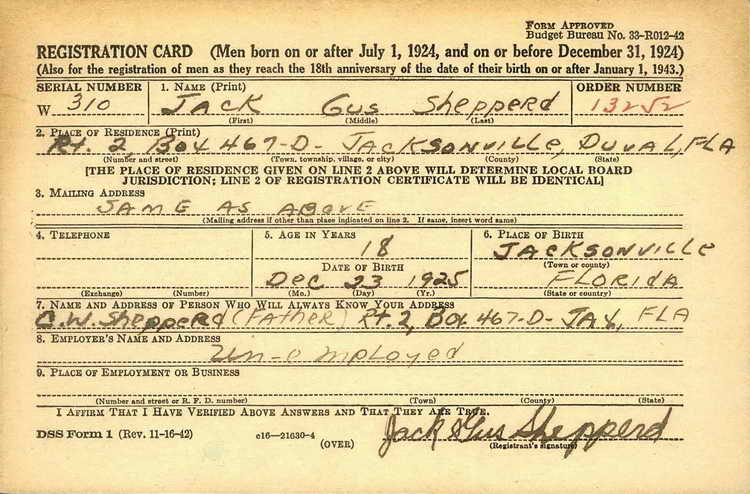 FORM APPROVED
Budget Bureau No. 33-R012-42
REGISTRATION CARD (Men born on or after July 1, 1924, and on or before December 31, 1924)
(Also for the registration of men as they reach the 18th anniversary of the date of their birth on or after January 1, 1943.)
SERIAL NUMBER 1. NAME (Print) ORDER NUMBER
W 310 JACK GUS Shepperd 13252
(First) (Middle) (Last)
2. PLACE OF RESIDENCE (Print)
Rt. 2, Box 467-D- JACKSONVILLE, DUVAL, FLA
(Number and street) (Town, township, village, or city) (County) (State)
[THE PLACE OF RESIDENCE GIVEN ON LINE 2 ABOVE WILL DETERMINE LOCAL BOARD
JURISDICTION; LINE 2 OF REGISTRATION CERTIFICATE WILL BE IDENTICAL]
3. MAILING ADDRESS
SAME AS ABOVE
(Mailing address if other than place indicated on line 2. If same, insert word same)
4. TELEPHONE 5. AGE IN YEARS 6. PLACE OF BIRTH
18 JACKSONVILLE
DATE OF BIRTH (Town or county)
Dec 23 1925 FLORIDA
(Exchange) (Number) (Mo.) (Day) (Yr.) (State or country)
7. NAME AND ADDRESS OF PERSON WHO WILL ALWAYS KNOW YOUR ADDRESS
C.W. Shepperd (Father) Rt. 2, Box 467-D- JAX, FLA
8. EMPLOYER'S NAME AND ADDRESS
Un-employed
9. PLACE OF EMPLOYMENT OR BUSINESS
(Number and street or R. F. D. number) (Town) (County) (State)
I AFFIRM THAT I HAVE VERIFIED ABOVE ANSWERS AND THAT THEY ARE TRUE.
DSS Form 1 (Rev. 11-16-42) c16—21630-4 Jack Gus Shepperd
(OVER) (Registrant's signature)